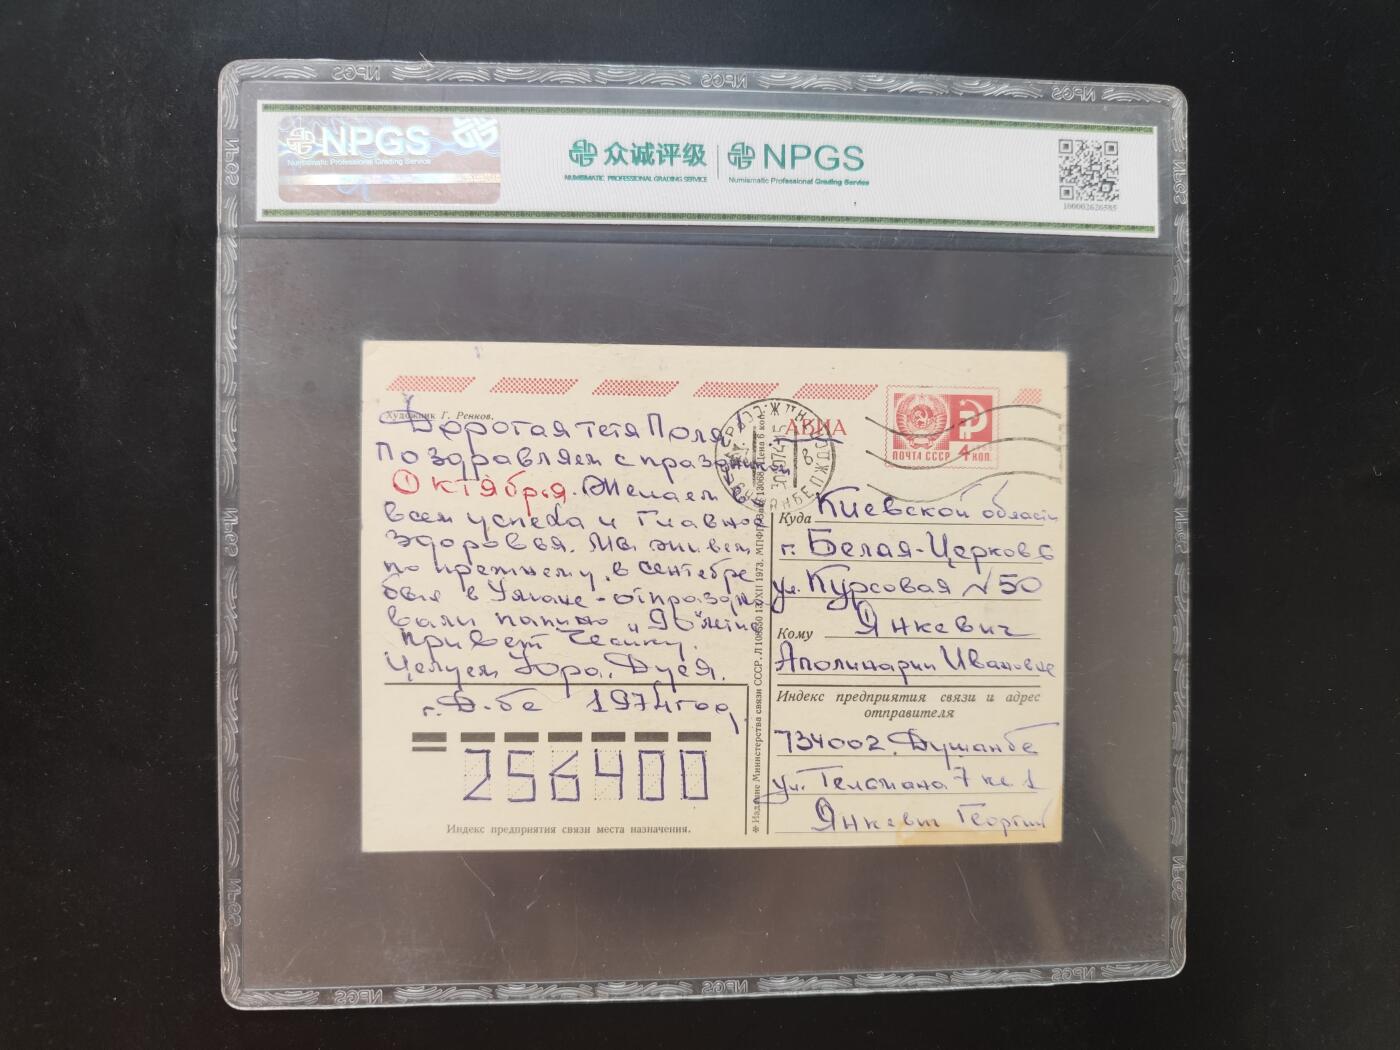 NPGS
Numismatic Professional Grading Service
众诚评级
NUMISMATIC PROFESSIONAL GRADING SERVICE
NPGS
Numismatic Professional Grading Service
100002626585
Художник Г. Ренков.
АВИА
ПОЧТА СССР 4 КОП.
Дорогая тетя Поля!
Поздравляем с праздником
Октября. Желаем
всем успеха и главное
здоровья. Мы живем
по прежнему, в сентябре
были в Умане - отпраздно
вали папино "70" летие
Привет Чесику.
Целуем Юра, Дуся.
г. Д-бе 1974 год
256400
Индекс предприятия связи места назначения.
Издание Министерства связи СССР.
Куда Киевской области
г. Белая-Церковь
ул. Курсовая N 50
Кому Янкевич
Аполинарии Ивановне
Индекс предприятия связи и адрес
отправителя
734002. Душанбе
ул. Тельмана 7 кв 1
Янкевич Георгий